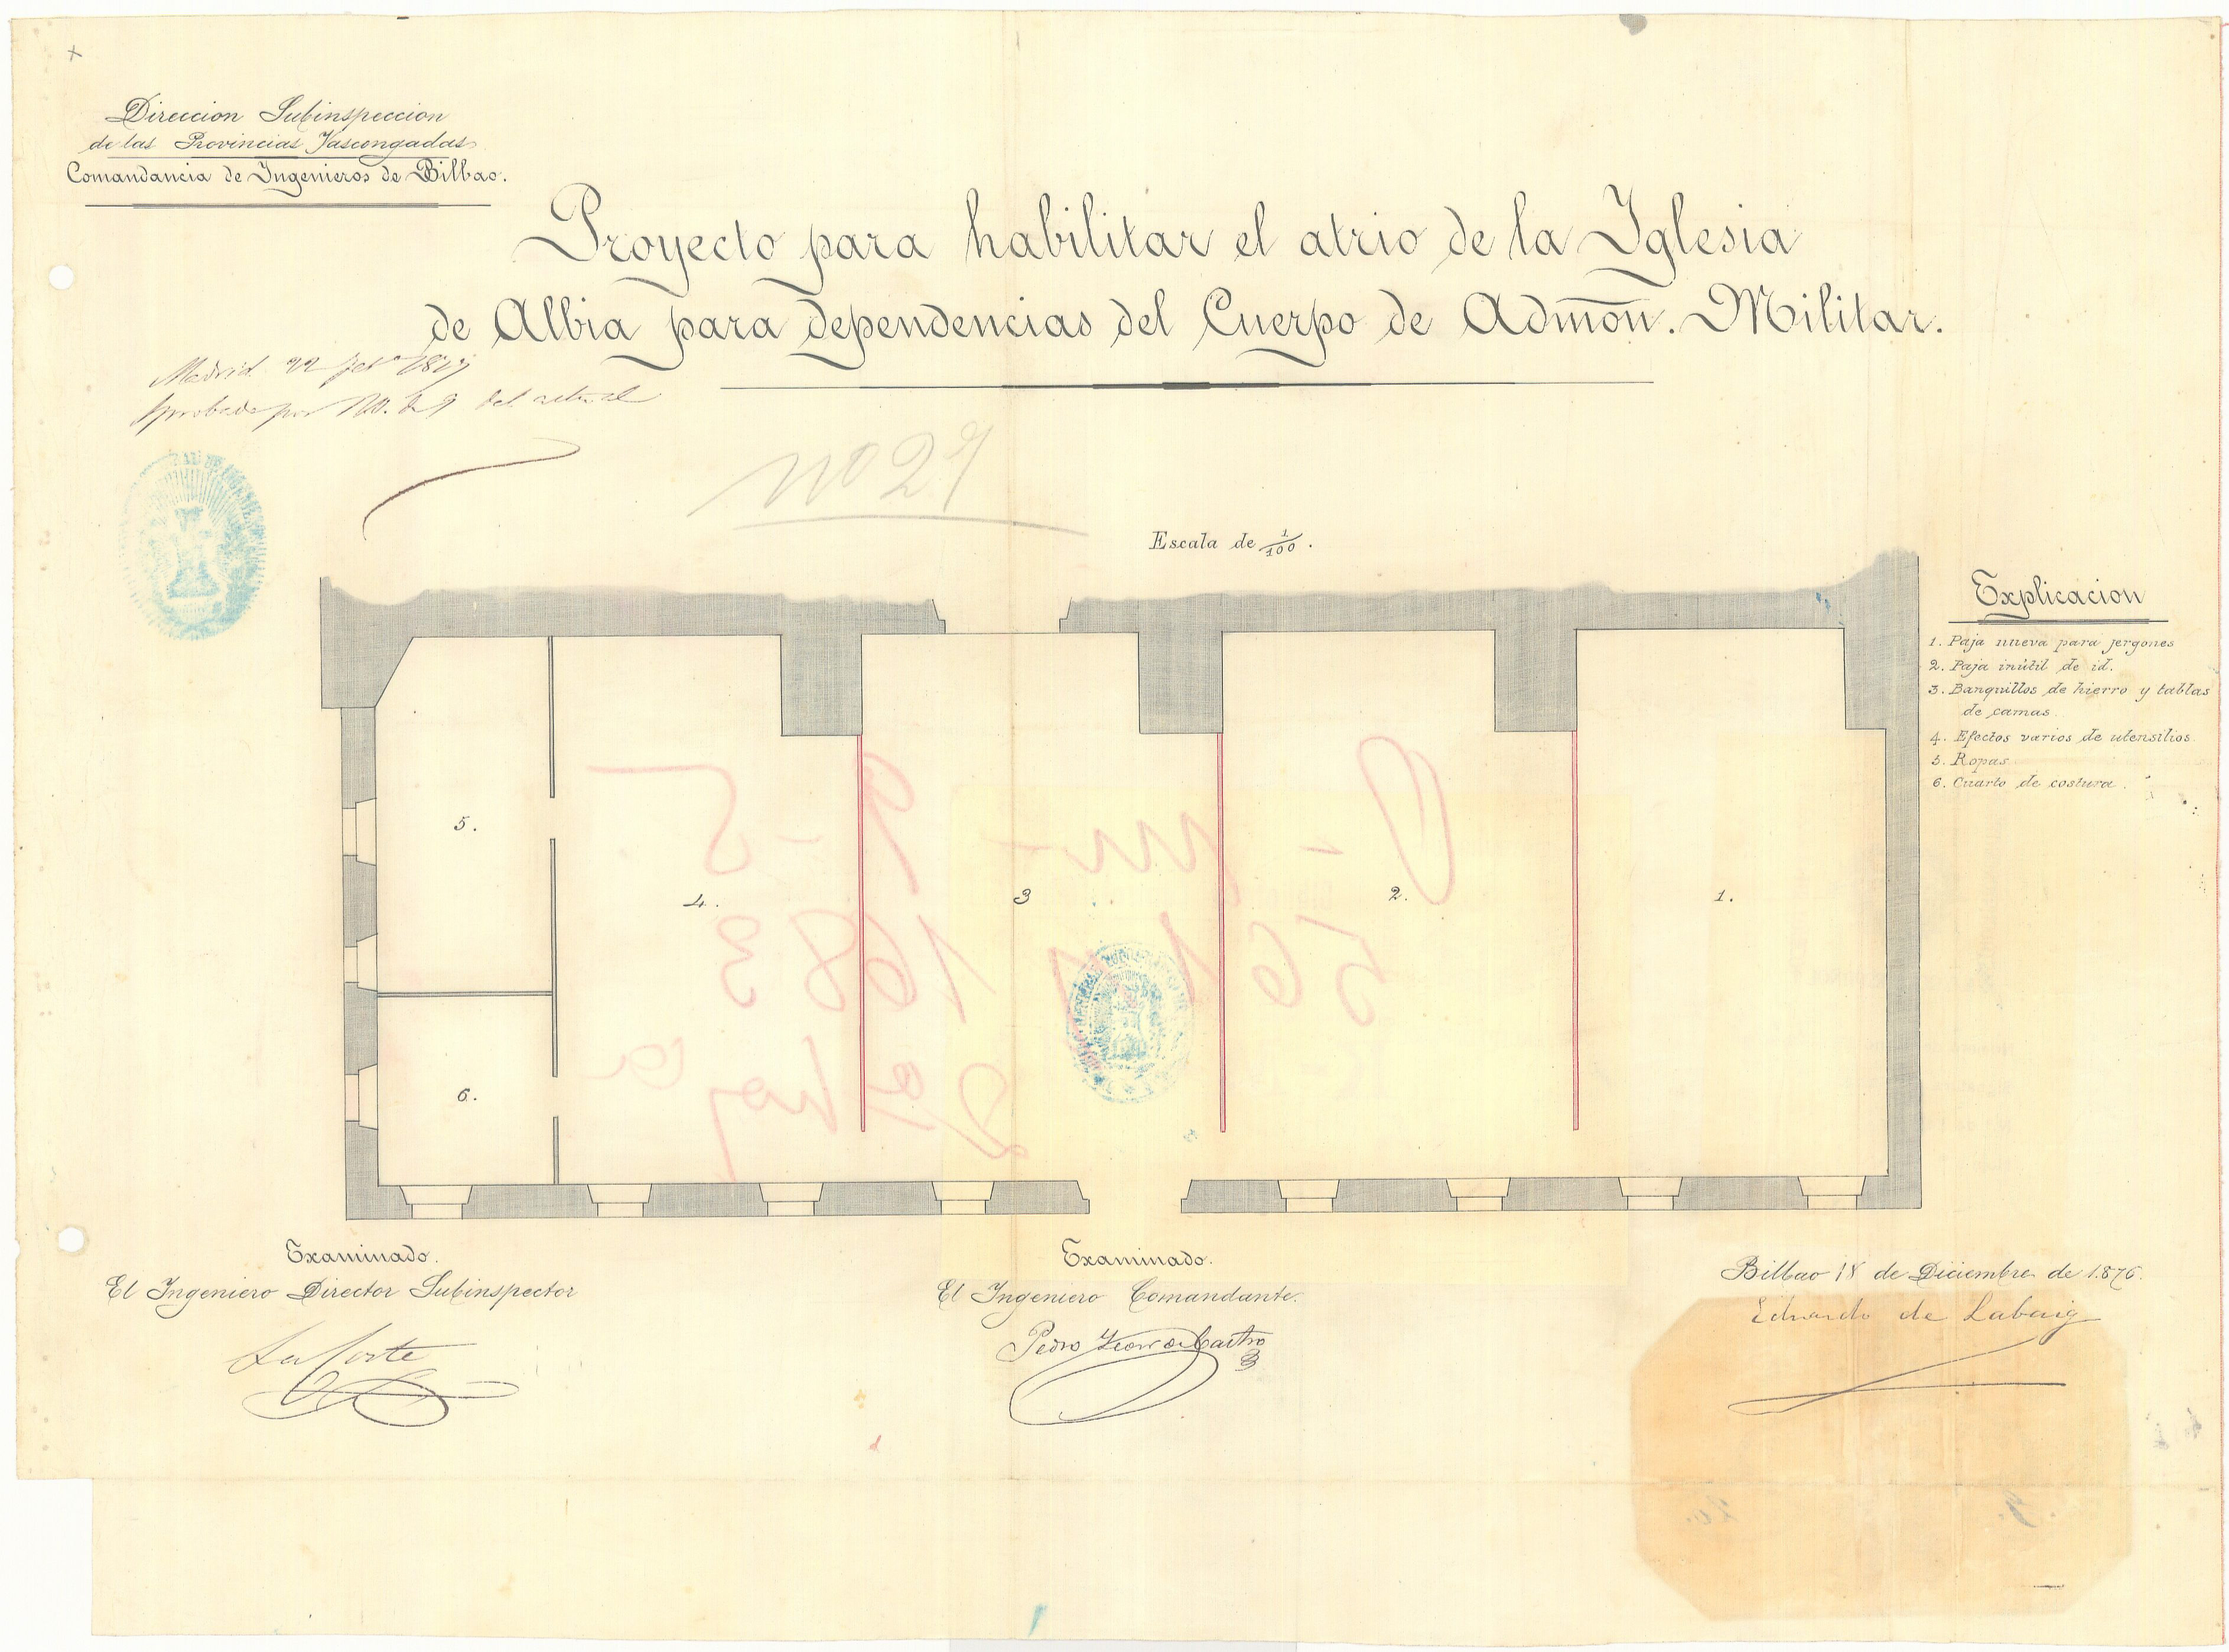 Direccion Subinspeccion
de las Provincias Vascongadas
Comandancia de Ingenieros de Bilbao.
Proyecto para habilitar el atrio de la Iglesia
de Albia para dependencias del Cuerpo de Admōn. Militar.
Madrid 22 feb 1877
Aprobado por R.O. de 9 del actual
nº 27
Escala de 1/100.
Explicacion
1. Paja nueva para jergones
2. Paja inútil de id.
3. Banquillos de hierro y tablas
de camas.
4. Efectos varios de utensilios.
5. Ropas.
6. Cuarto de costura.
5.
4.
3
2.
1.
6.
Examinado.
El Ingeniero Director Subinspector
Examinado.
El Ingeniero Comandante.
Pedro Leon de Castro
Bilbao 18 de Diciembre de 1.876.
Eduardo de Labaig